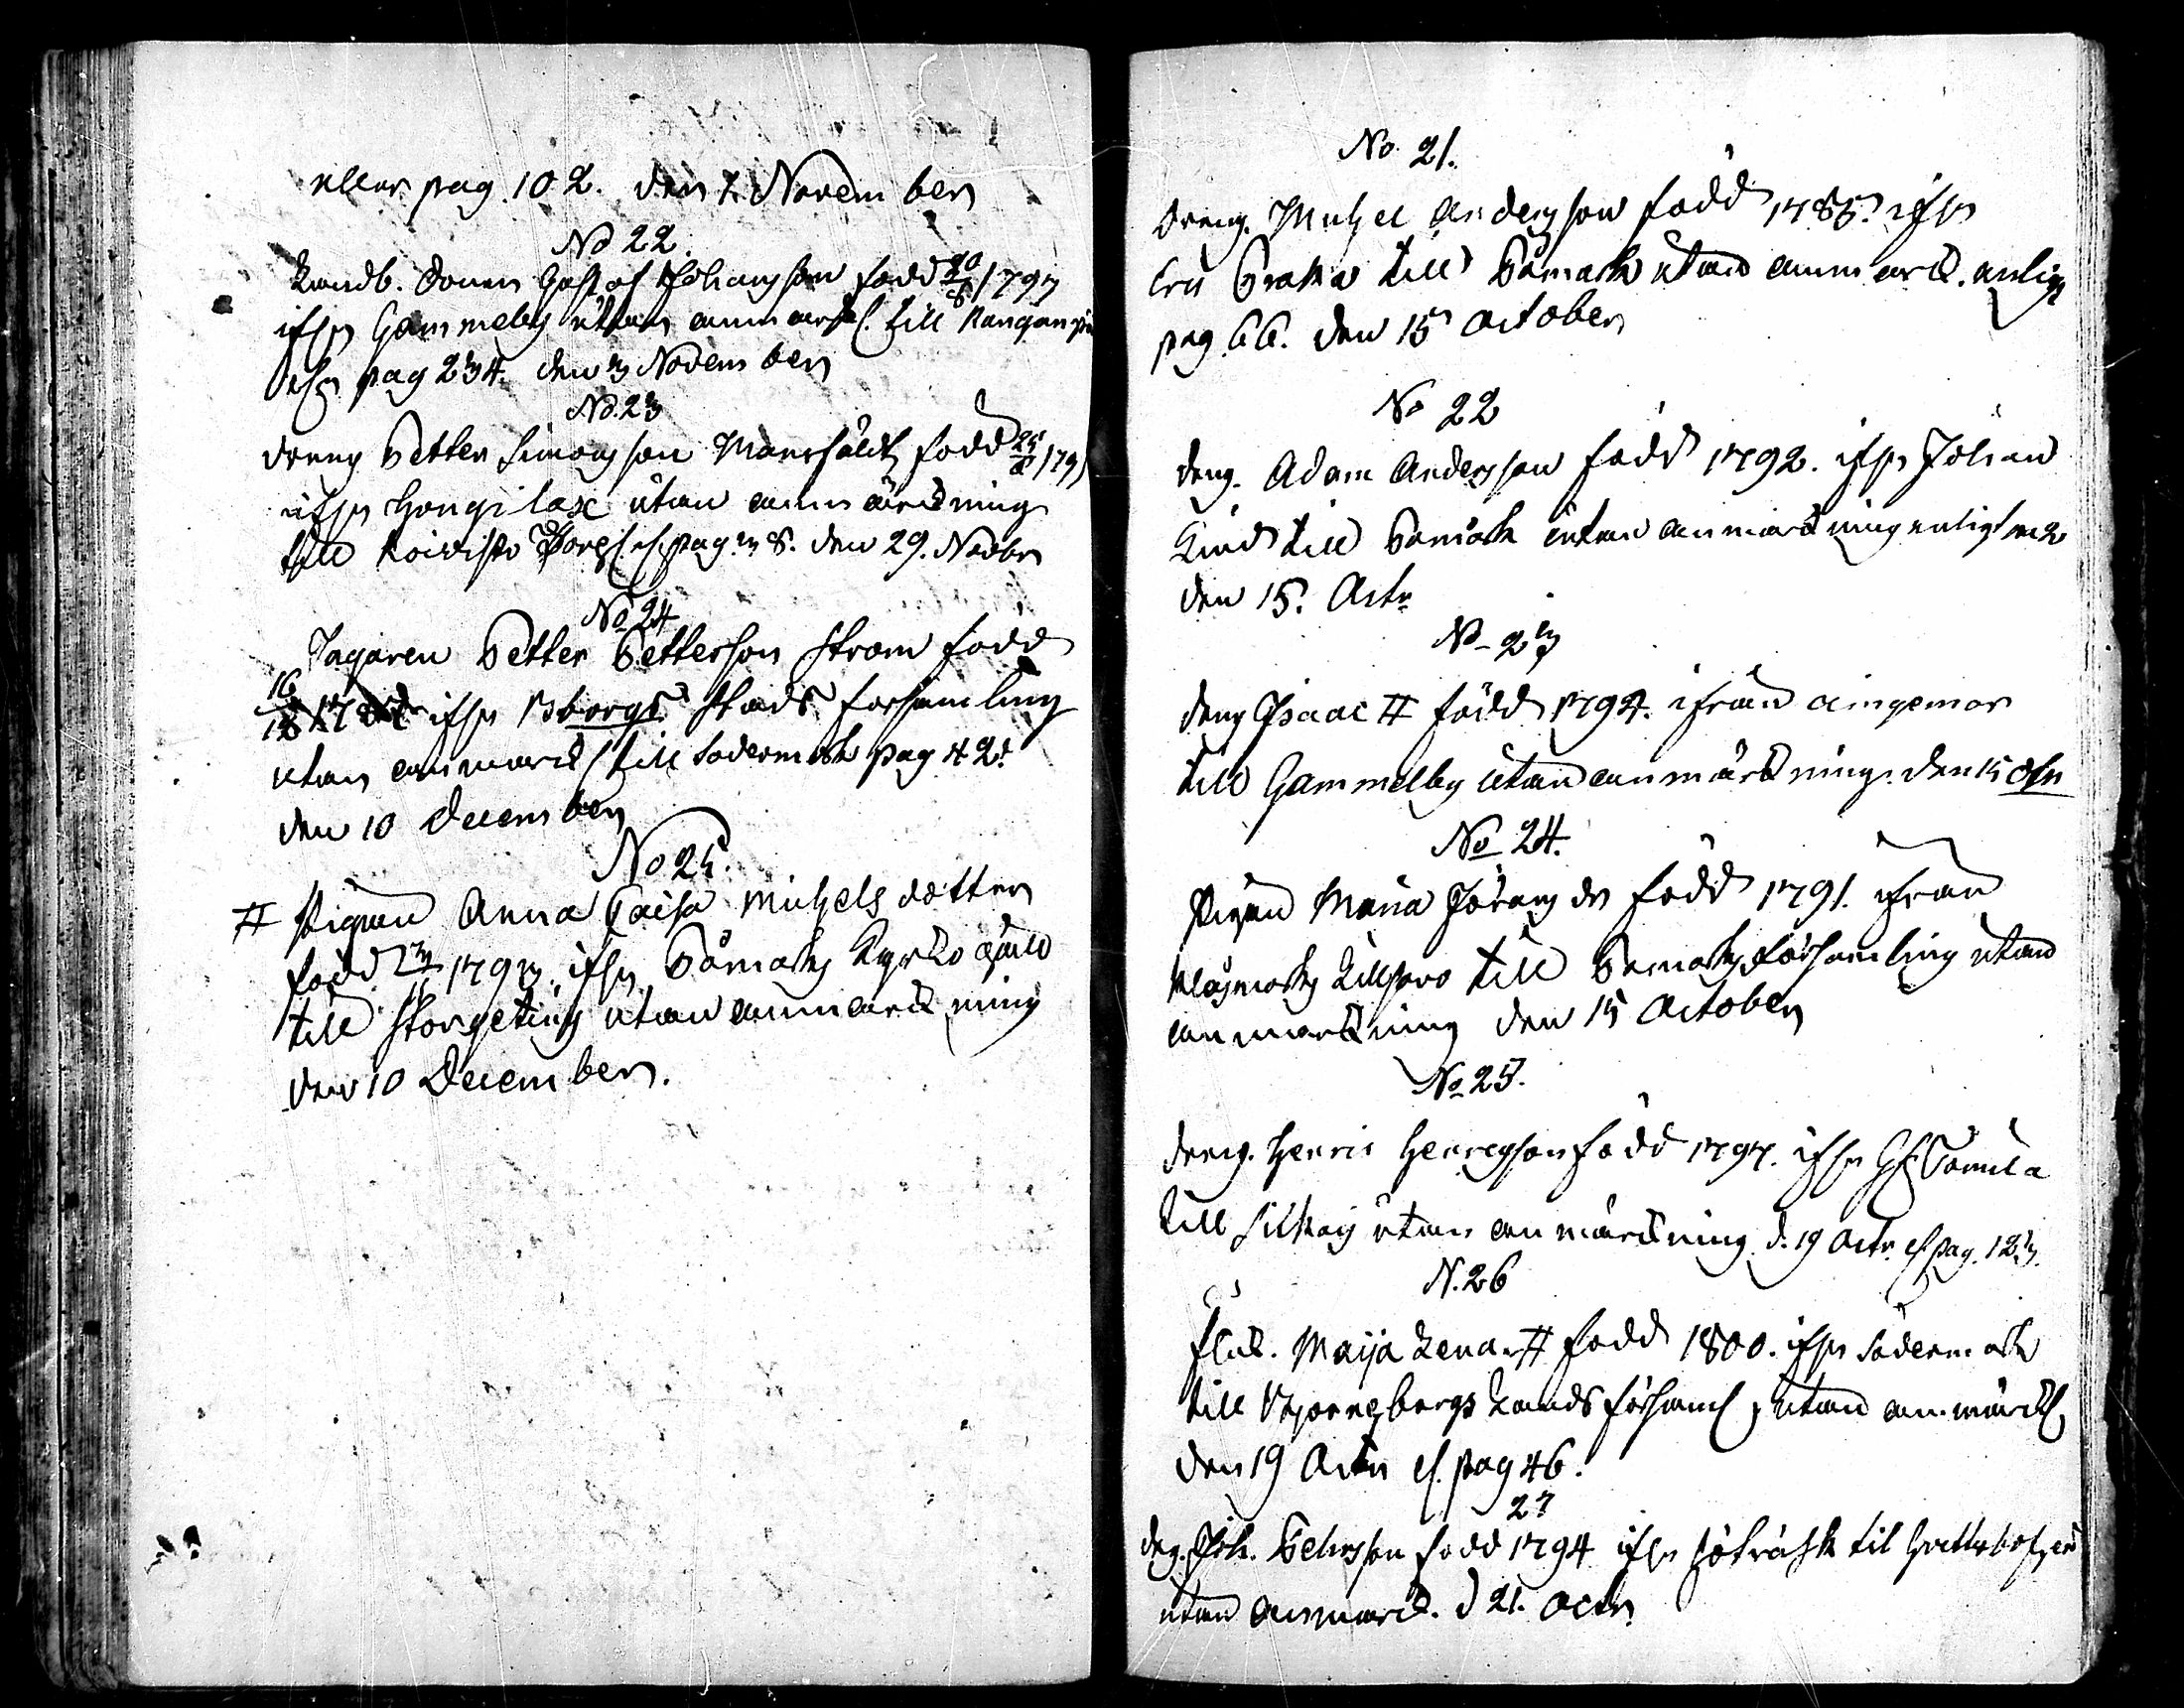 eller pag. 102. den 2 November
No 22.
Landb. Sonen Gustaf Johansson född 20/8 1797
ifrn Gammelby utan anmärkn. till Kangan
pag 234. den 3 November
No. 23
dreng Petter Simonsson född 25/8 179
ifrn Hongilax utan anmärkning
till Koivisto pag. 38. den 29. Novbr
No 24
Jagaren Petter Petterson Ström född
16/12 ifrn Bborgs Stads församling
utan anmärk till Södermark pag 42.
den 10 December
No 25.
# Pigan Anna Caisa Michels dotter
född 23 1793 ifrn Påmarks Kyrko gäld
till Storgeting utan anmärkning
den 10 December.
No 21.
dreng. Michel Andersson född 1785. ifrn
till Påmark utan anmärk. enligt
pag. 66. den 15 October
No 22
deng. Adam Andersson född 1792. ifrn Johan
Lind till Påmark utan anmärkning enligt
den 15. Octr
No 23
deng Isaac # född 1794. ifrån aingemar
till Gammelby utan anmärkning. den 15 Obr
No 24.
Pigan Maria Jörans dr född 1791. ifrån
Klåsmark till Pamarks församling utan
anmärkning den 15 October
No 25.
dreng. Henric Henricsson född 1797. ifrn
till Silkais utan anmärkning d. 19 Octr. cf. pag. 123.
N. 26
Flick. Maija Lena # född 1800. ifrn Södermark
till Bjorneborgs Lands församl utan anmärk
den 19 Octr cf. pag 46.
27
deg. Joh. Petersson född 1794 ifrn Söträsk til
utan anmärk. d 21. Octr